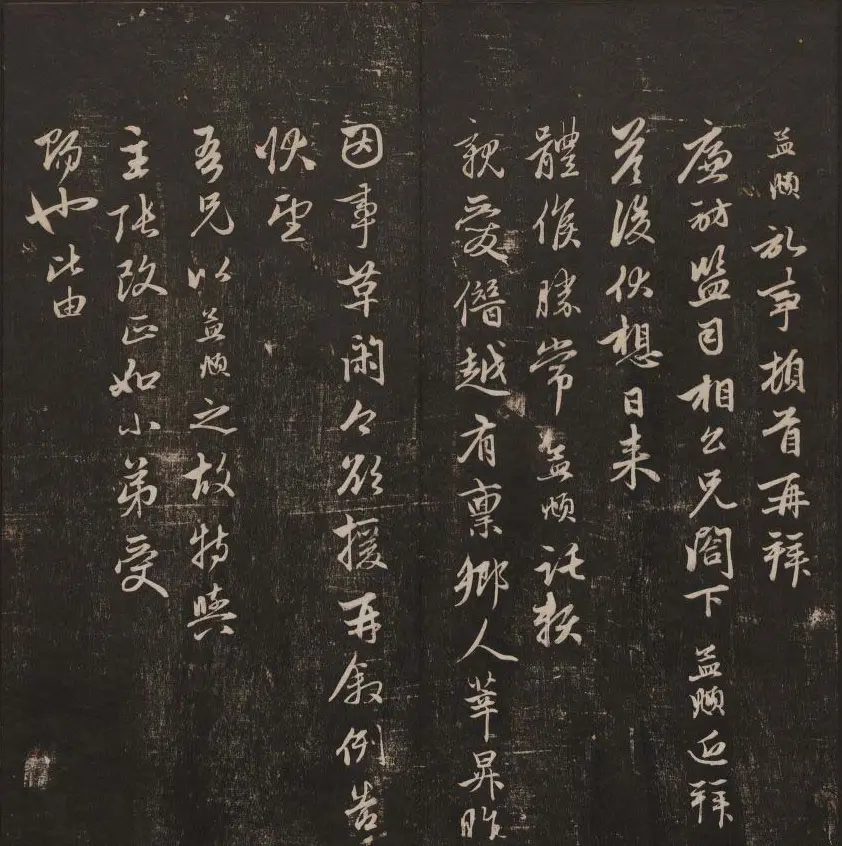 孟頫記事頓首再拜
廉訪監司相公兄閣下孟頫近拜
答後伏想日來
體候勝常孟頫託契
親愛僭越有禀鄉人莘昇昨
因事革閑今欲援再敘例告
伏望
吾兄以孟頫之故特與
主張改正如小弟受
賜也此由